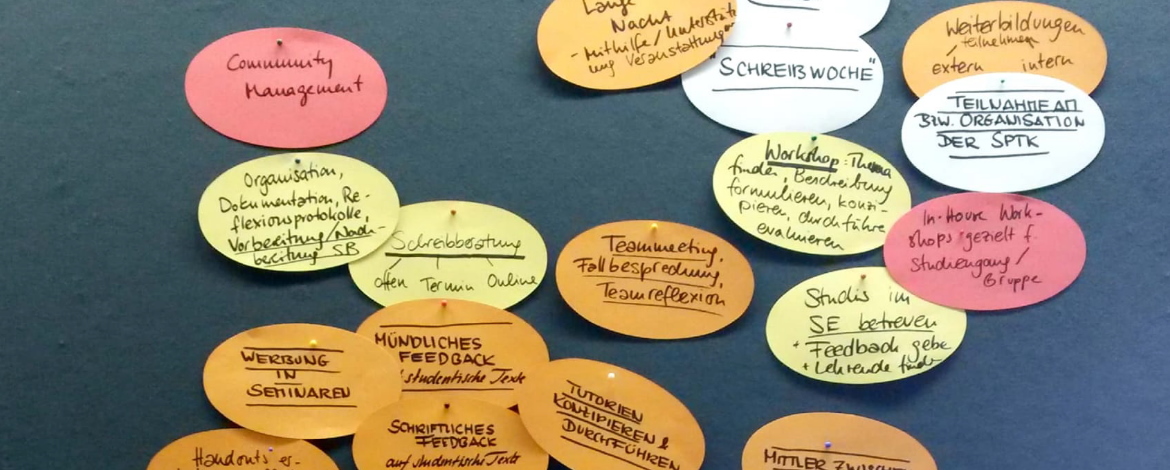 Community
Management
Lange
Nacht
- Mithilfe / Unterstütz
ung Veranstaltungen
"SCHREIBWOCHE"
Weiterbildungen
teilnehmen
extern intern
TEILNAHME AN
BZW. ORGANISATION
DER SPTK
Organisation,
Dokumentation, Re-
flexionsprotokolle,
Vorbereitung/Nach-
bereitung SB
Schreibberatung
offen Termin Online
Teammeeting,
Fallbesprechung,
Teamreflexion
Workshop: Thema
finden, Beschreibung
formulieren, konzi-
pieren, durchführe
evaluieren
In-House Work-
shops gezielt f.
Studiengang /
Gruppe
Studis im
SE betreuen
+ Feedback gebe
+ Lehrende
WERBUNG
IN
SEMINAREN
MÜNDLICHES
FEEDBACK
studentische Texte
SCHRIFTLICHES
FEEDBACK
auf studentische Texte
TUTORIEN
KONZIPIEREN &
DURCHFÜHREN
Handouts er-
MITTLER ZWISCHE